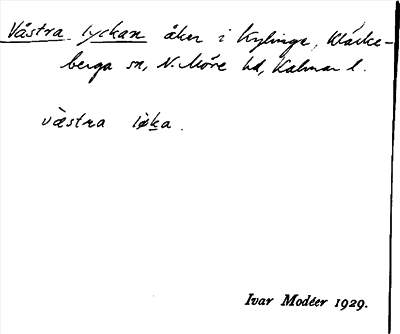 Västra lyckan åker i Kylinge, Kläcke-
berga sn, N. Möre hd, Kalmar l.
västra løka.
Ivar Modéer 1929.